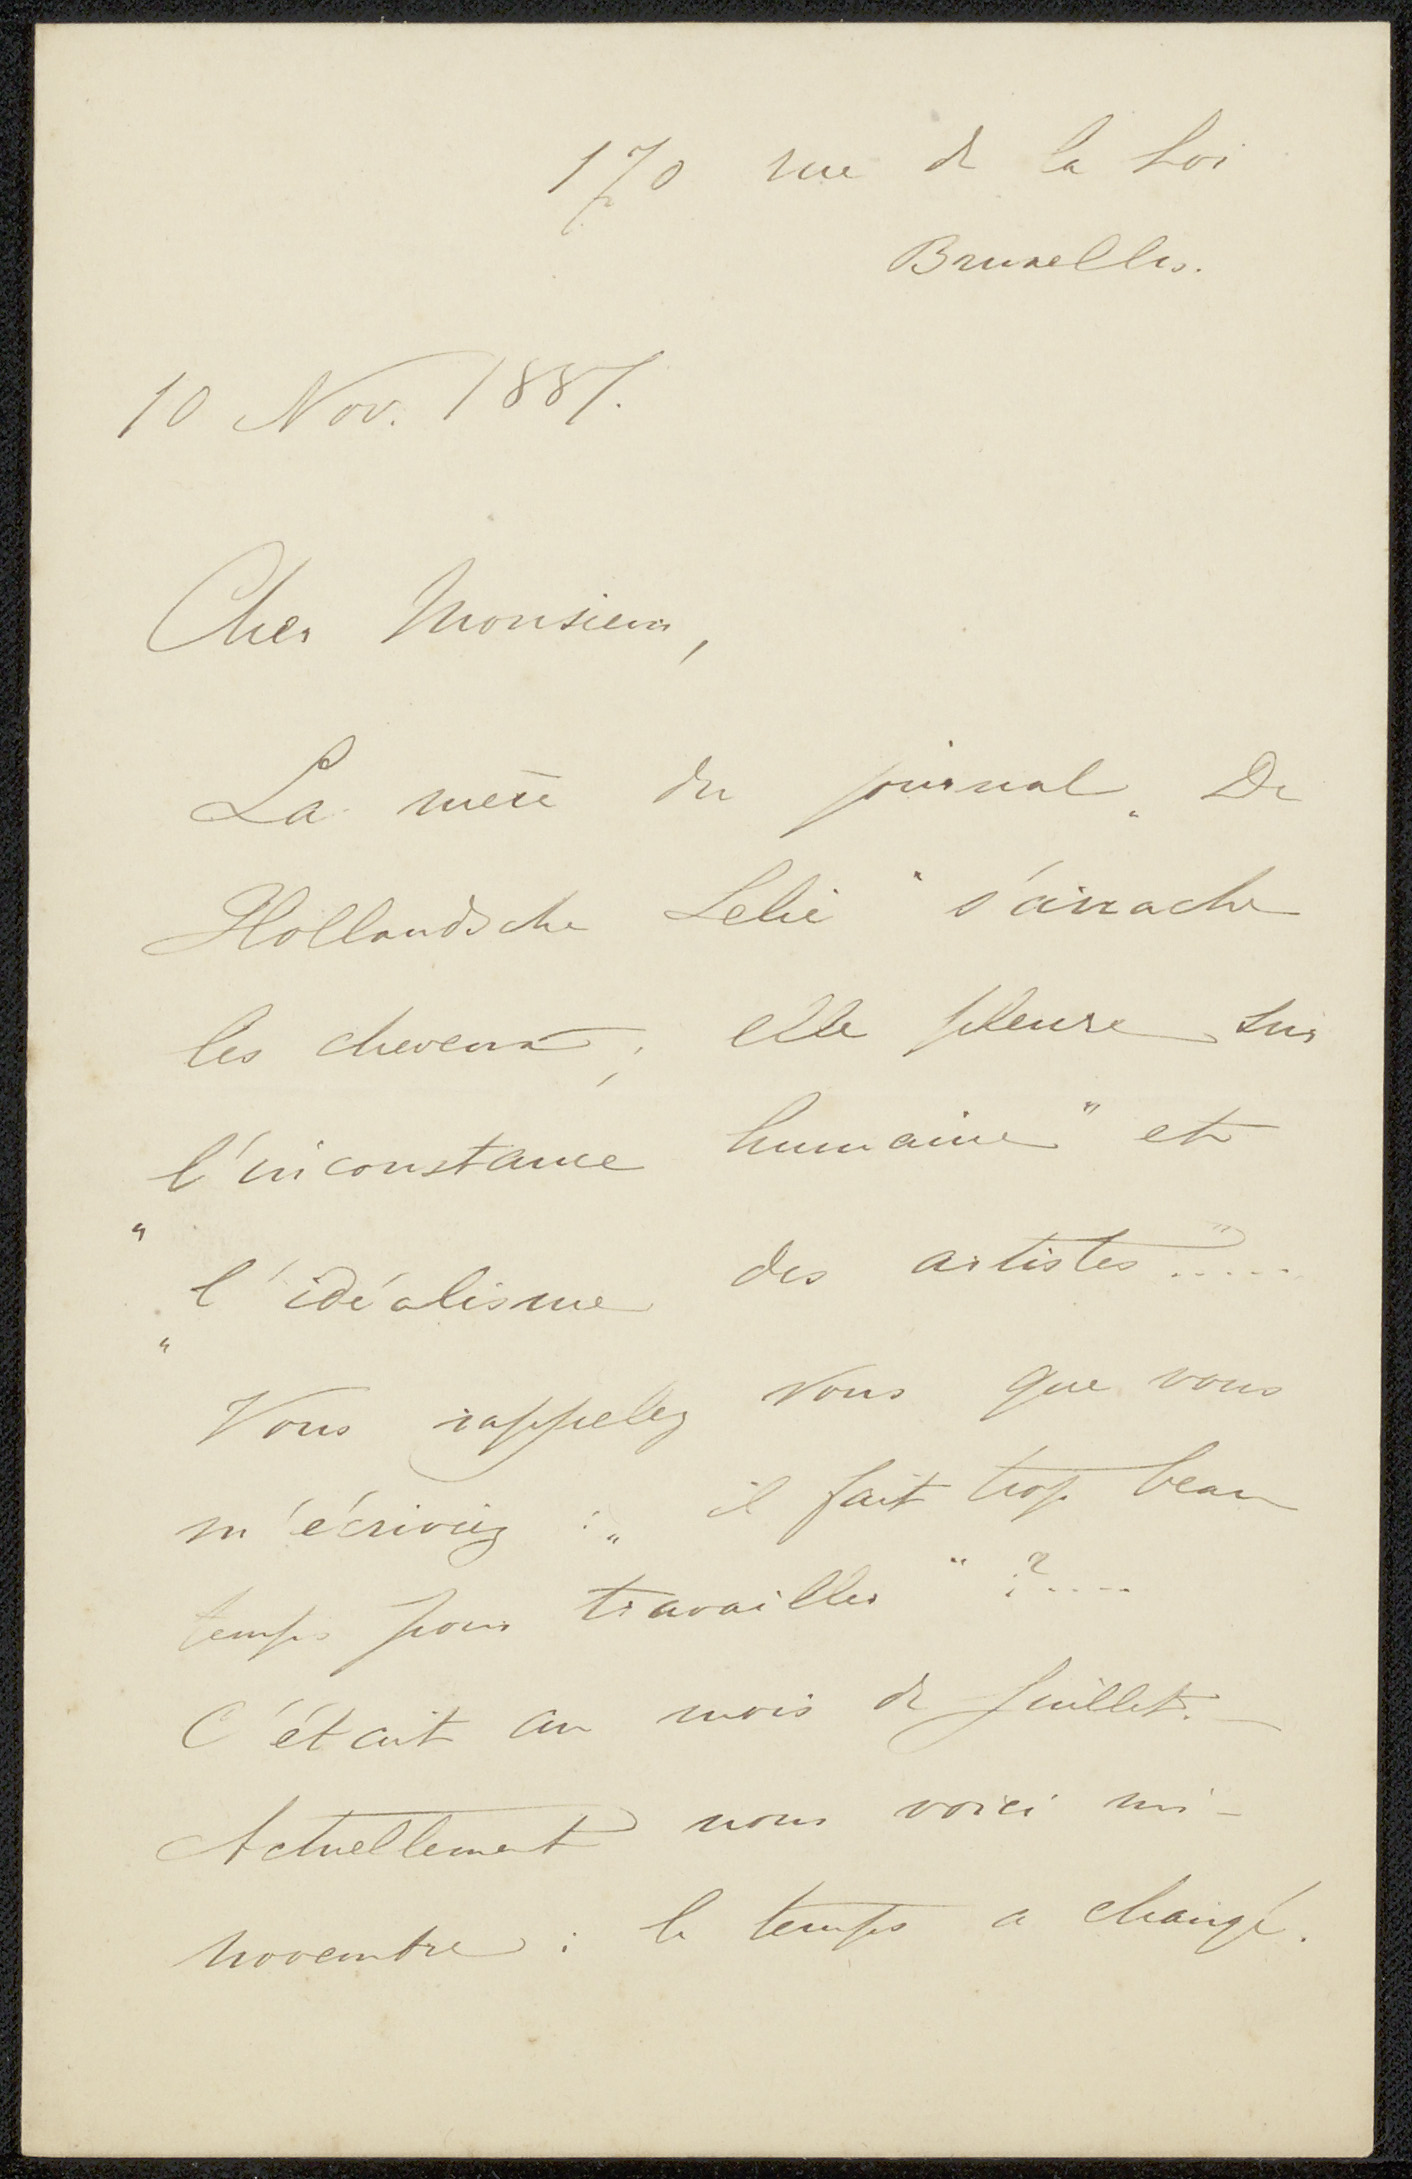 170 rue de la Loi
Bruxelles.
10 Nov. 1887.
Cher Monsieur,
La mère du journal „De
Hollandsche Lelie" s'arrache
les cheveux; elle pleure sur
„l'inconstance humaine" et
„l'idéalisme des artistes".....
Vous rappelez vous que vous
m'écriviez : „il fait trop beau
temps pour travailler" ?....
C'était au mois de Juillet.—
Actuellement nous voici mi-
novembre : le temps a changé.